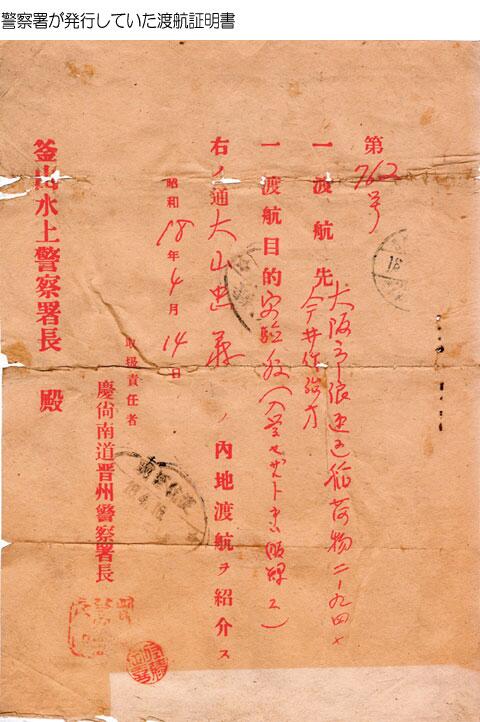 警察署が発行していた渡航証明書
第762号
一 渡航先 大阪市浪速区稲荷町二ノ九四七
今井作 方
一 渡航目的 受験 （入学セザレトキハ帰鮮ス）
右ノ通 大山忠義 ノ內地渡航ヲ紹介ス
昭和18年4月14日
取扱責任者
慶尙南道晋州警察署長
釜山水上警察署長 殿